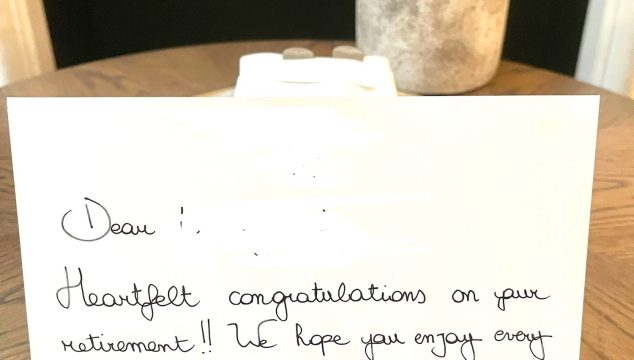 Dear
Heartfelt congratulations on your
retirement!! We hope you enjoy every